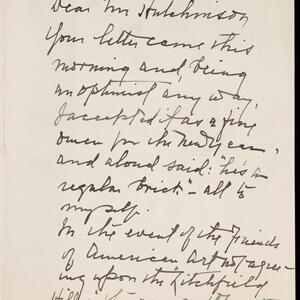 Dear Mr Hutchinson
Your letter came this
morning and, being
an optimist any way,
I accepted it as a fine
omen for the
and aloud said: "he's a
regular brick" – all to
myself.
In the event of the "Friends
of American Art" not agree-
ing upon the "Litchfield
Hills"